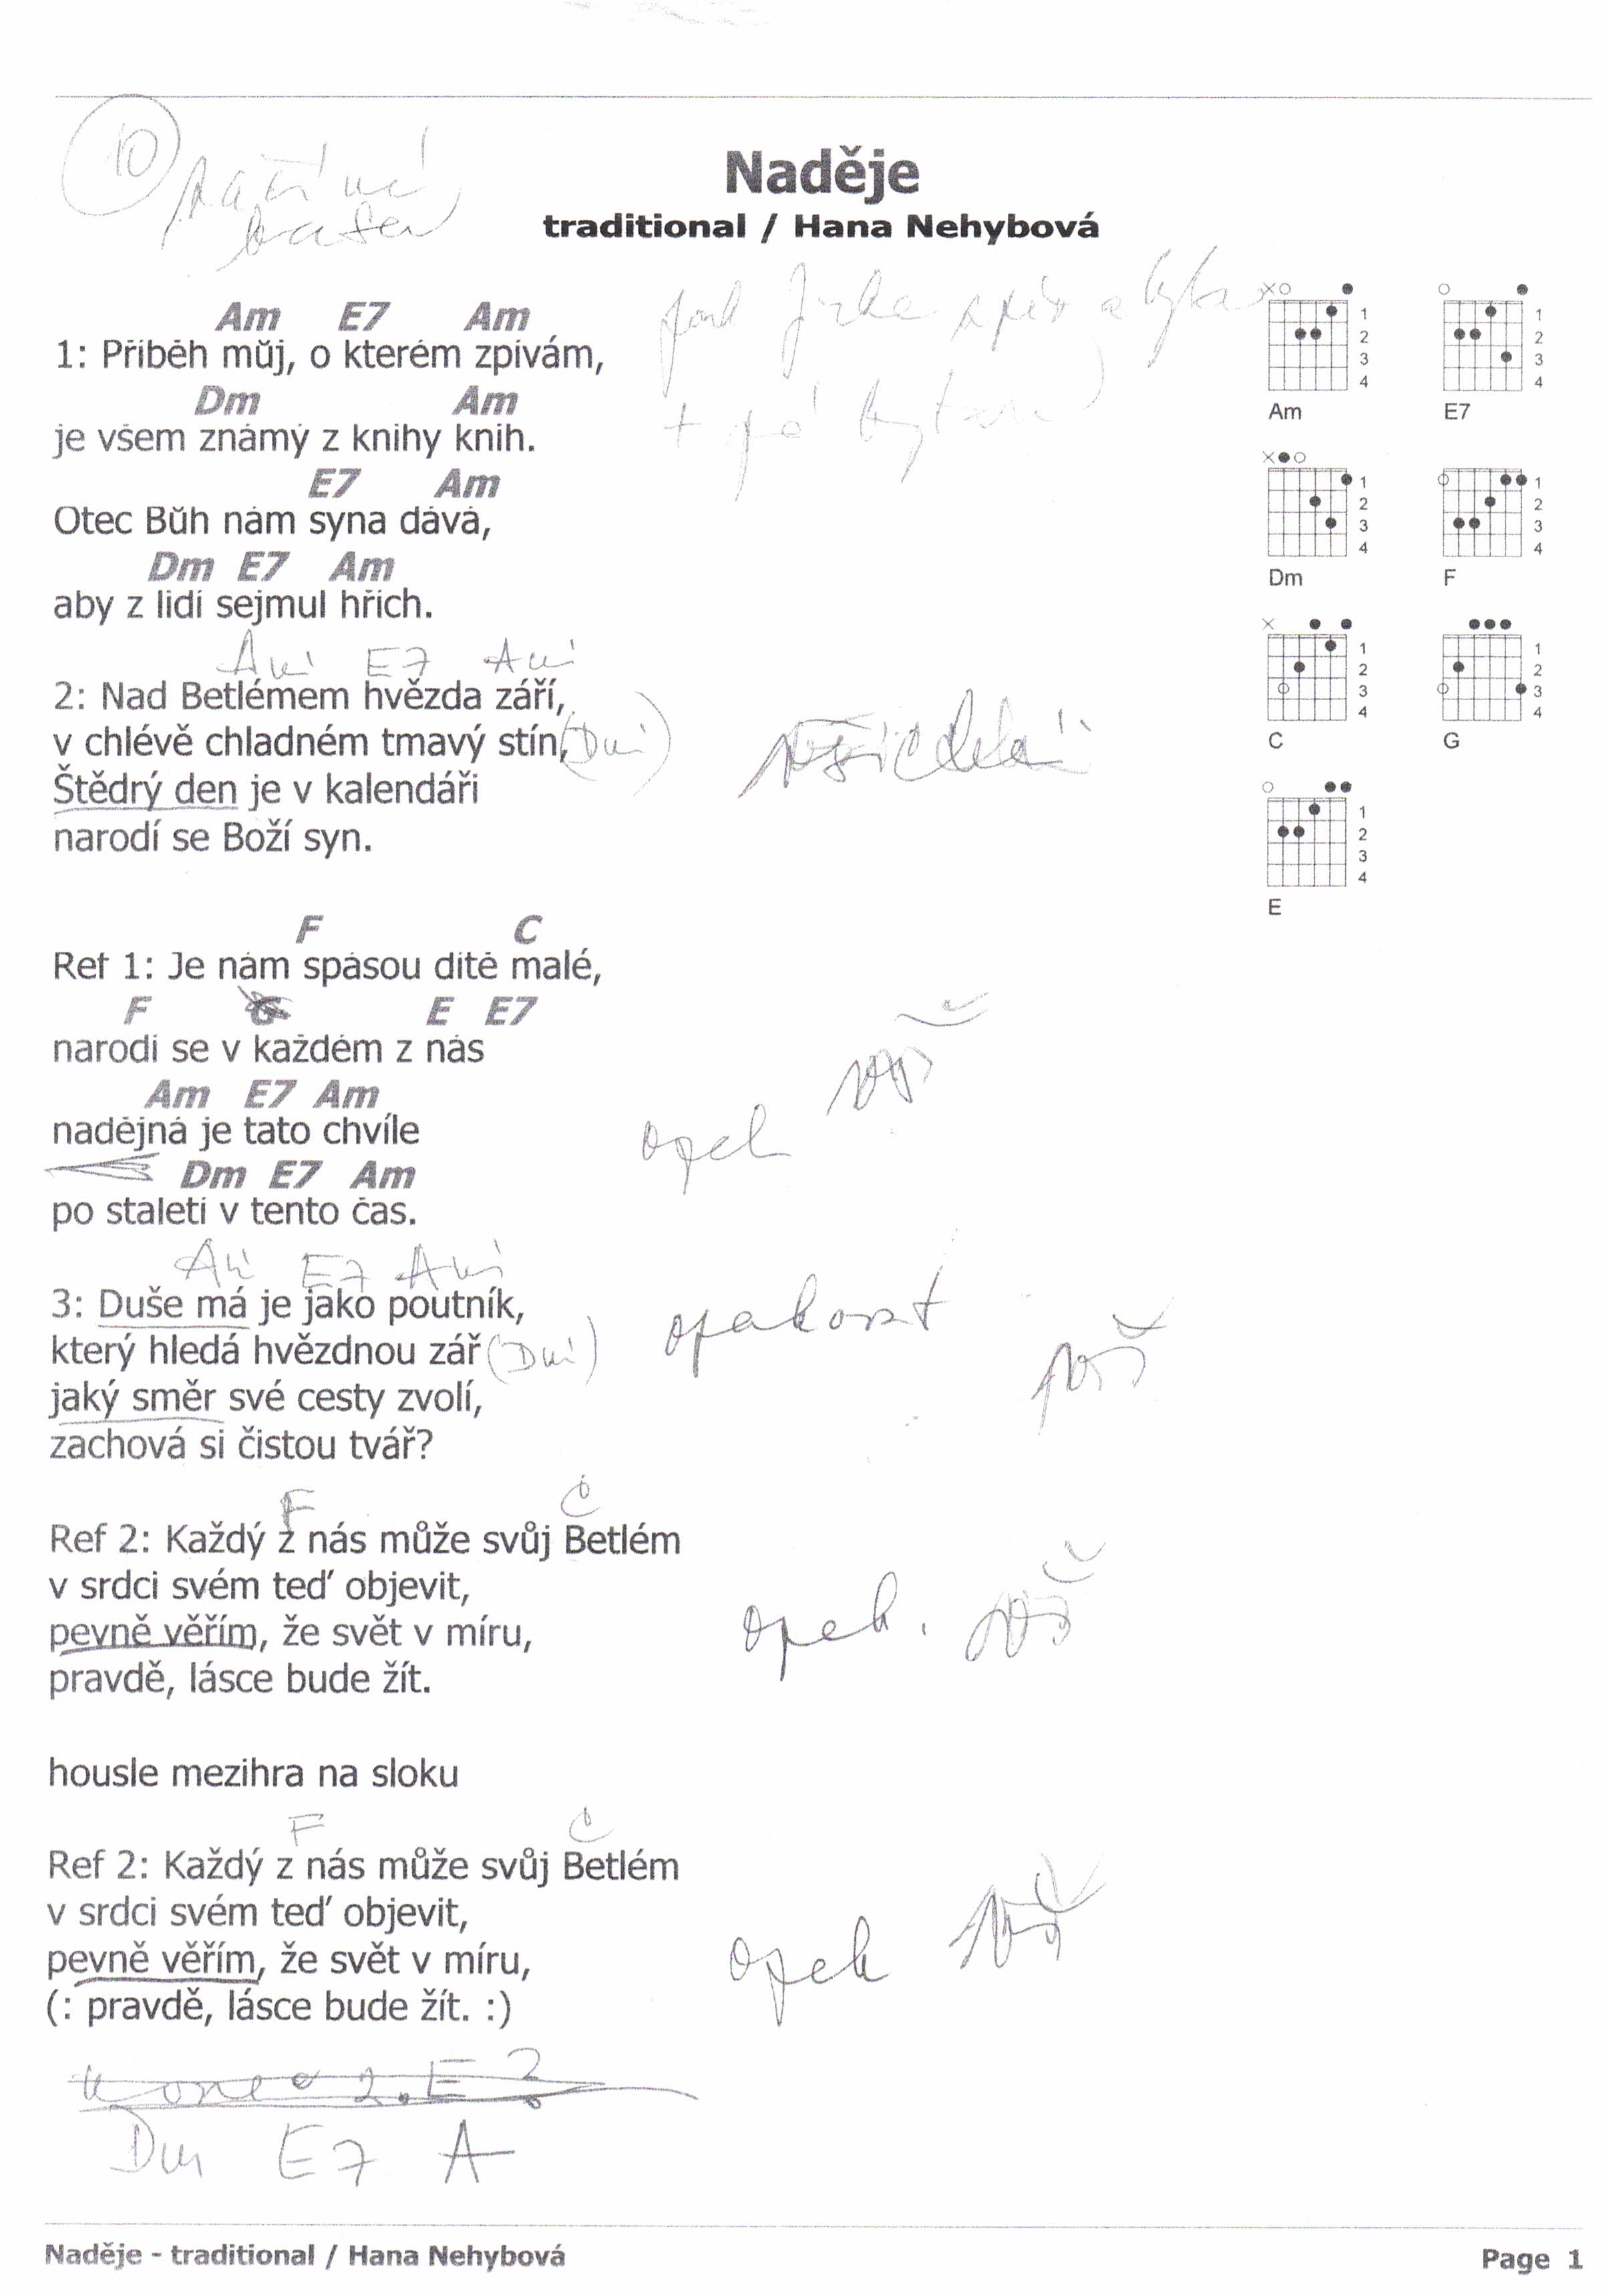 10
Naděje
traditional / Hana Nehybová
Am E7 Am
1: Příběh můj, o kterém zpívám,
Dm Am
je všem známý z knihy knih.
E7 Am
Otec Bůh nám syna dává,
Dm E7 Am
aby z lidí sejmul hřích.
Ami E7 Ami
2: Nad Betlémem hvězda září,
v chlévě chladném tmavý stín, (Dmi)
Štědrý den je v kalendáři
narodí se Boží syn.
F C
Ref 1: Je nám spásou dítě malé,
F G E E7
narodí se v každém z nás
všichni
Am E7 Am
nadějná je tato chvíle
opak
Dm E7 Am
po staletí v tento čas.
Ami E7 Ami
3: Duše má je jako poutník,
opakovat
který hledá hvězdnou zář (Dmi)
jaký směr své cesty zvolí,
zachová si čistou tvář?
F C
Ref 2: Každý z nás může svůj Betlém
v srdci svém teď objevit,
pevně věřím, že svět v míru,
opak.
pravdě, lásce bude žít.
housle mezihra na sloku
F C
Ref 2: Každý z nás může svůj Betlém
v srdci svém teď objevit,
pevně věřím, že svět v míru,
opak
(: pravdě, lásce bude žít. :)
konec 2. E ?
Dm E7 A
x o 1 2 3 4 Am
o 1 2 3 4 E7
x o 1 2 3 4 Dm
1 2 3 4 F
x 1 2 3 4 C
1 2 3 4 G
o 1 2 3 4 E
Naděje - traditional / Hana Nehybová
Page 1